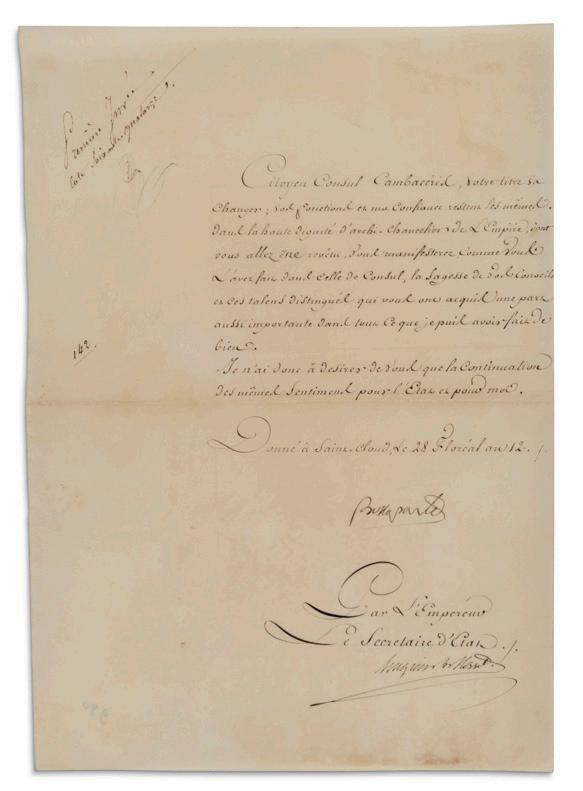 Première
Cote Soixante quatorze
Citoyen Consul Cambacérès, Votre titre va
Changer; vos fonctions et ma Confiance restent les mêmes.
dans la haute dignité d'archi-Chancelier de L'Empire, dont
vous allez être revêtu, Vous manifesterez, Comme Vous
L'avez fait dans Celle de Consul, la Sagesse de Vos Conseils
et Ces talens distingués qui vous ont acquis une part
aussi importante dans tout Ce que je puis avoir fait de
bien.
142.
Je n'ai donc à desirer de Vous que la Continuation
des mêmes Sentimens pour l'Etat et pour moi.
Donné à Saint-Cloud, Le 28 Floréal an 12.
Bonaparte
Par L'Empereur
Le Secretaire d'Etat.
Hugues B. Maret.